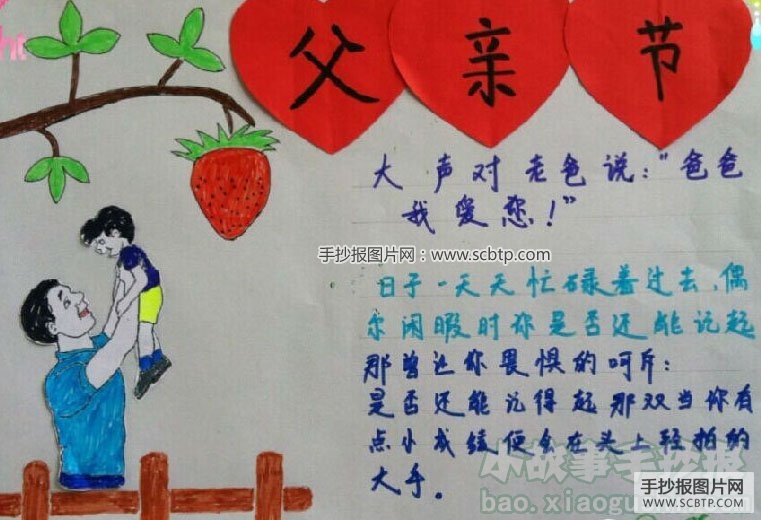 父亲节
大声对老爸说："爸爸
我爱您！"
手抄报图片网：www.scbtp.com
日子一天天忙碌着过去，偶
尔闲暇时你是否还能记起
那曾让你畏惧的呵斥：
是否还能记得起那双当你有
点小成绩便会在头上轻拍的
大手。
小故事手抄报
bao.xiaogu
手抄报图片网
WWW.SCBTP.COM